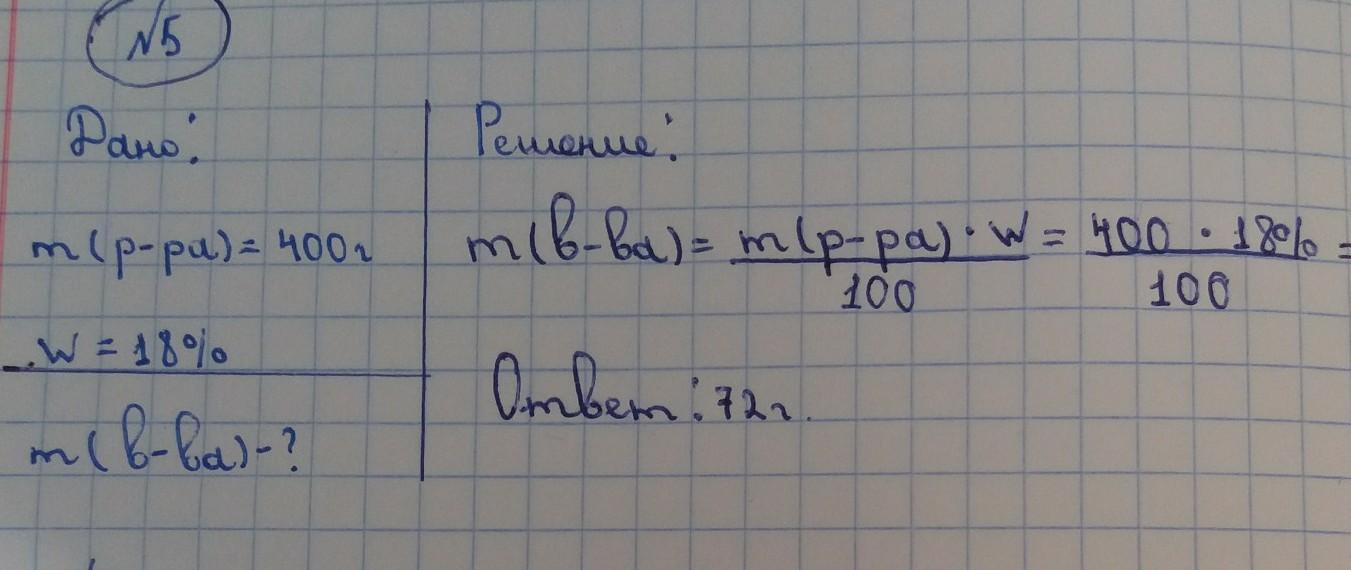 №5
Дано:
m(р-ра)=400г
w=18%
m(в-ва)-?
Решение:
m(в-ва)= m(р-ра)·w = 400·18% =
100 100
Ответ: 72г.